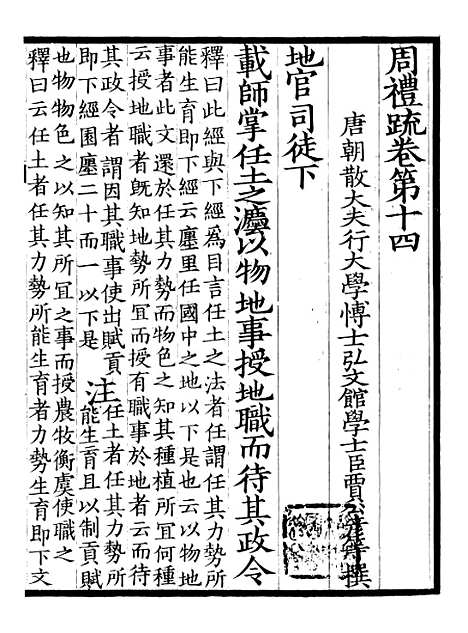 周禮疏卷第十四
唐朝散大夫行大學博士弘文館學士臣賈公彥等撰
地官司徒下
載師掌任土之灋以物地事授地職而待其政令
釋曰此經與下經爲目言任土之法者任謂任其力勢所
能生育即下經云廛里任國中之地以下是也云以物地
事者此文還於任其力勢而物色之知其種植所冝何種
云授地職者旣知地勢所冝而授有職事於地者云而待
其政令者謂因其職事使出賦貢
即下經園廛二十而一以下是
注
任土者任其力勢所
能生育且以制貢賦
也物物色之以知其所冝之事而授農牧衡虞使職之
釋曰云任土者任其力勢所能生育者力勢生育即下文